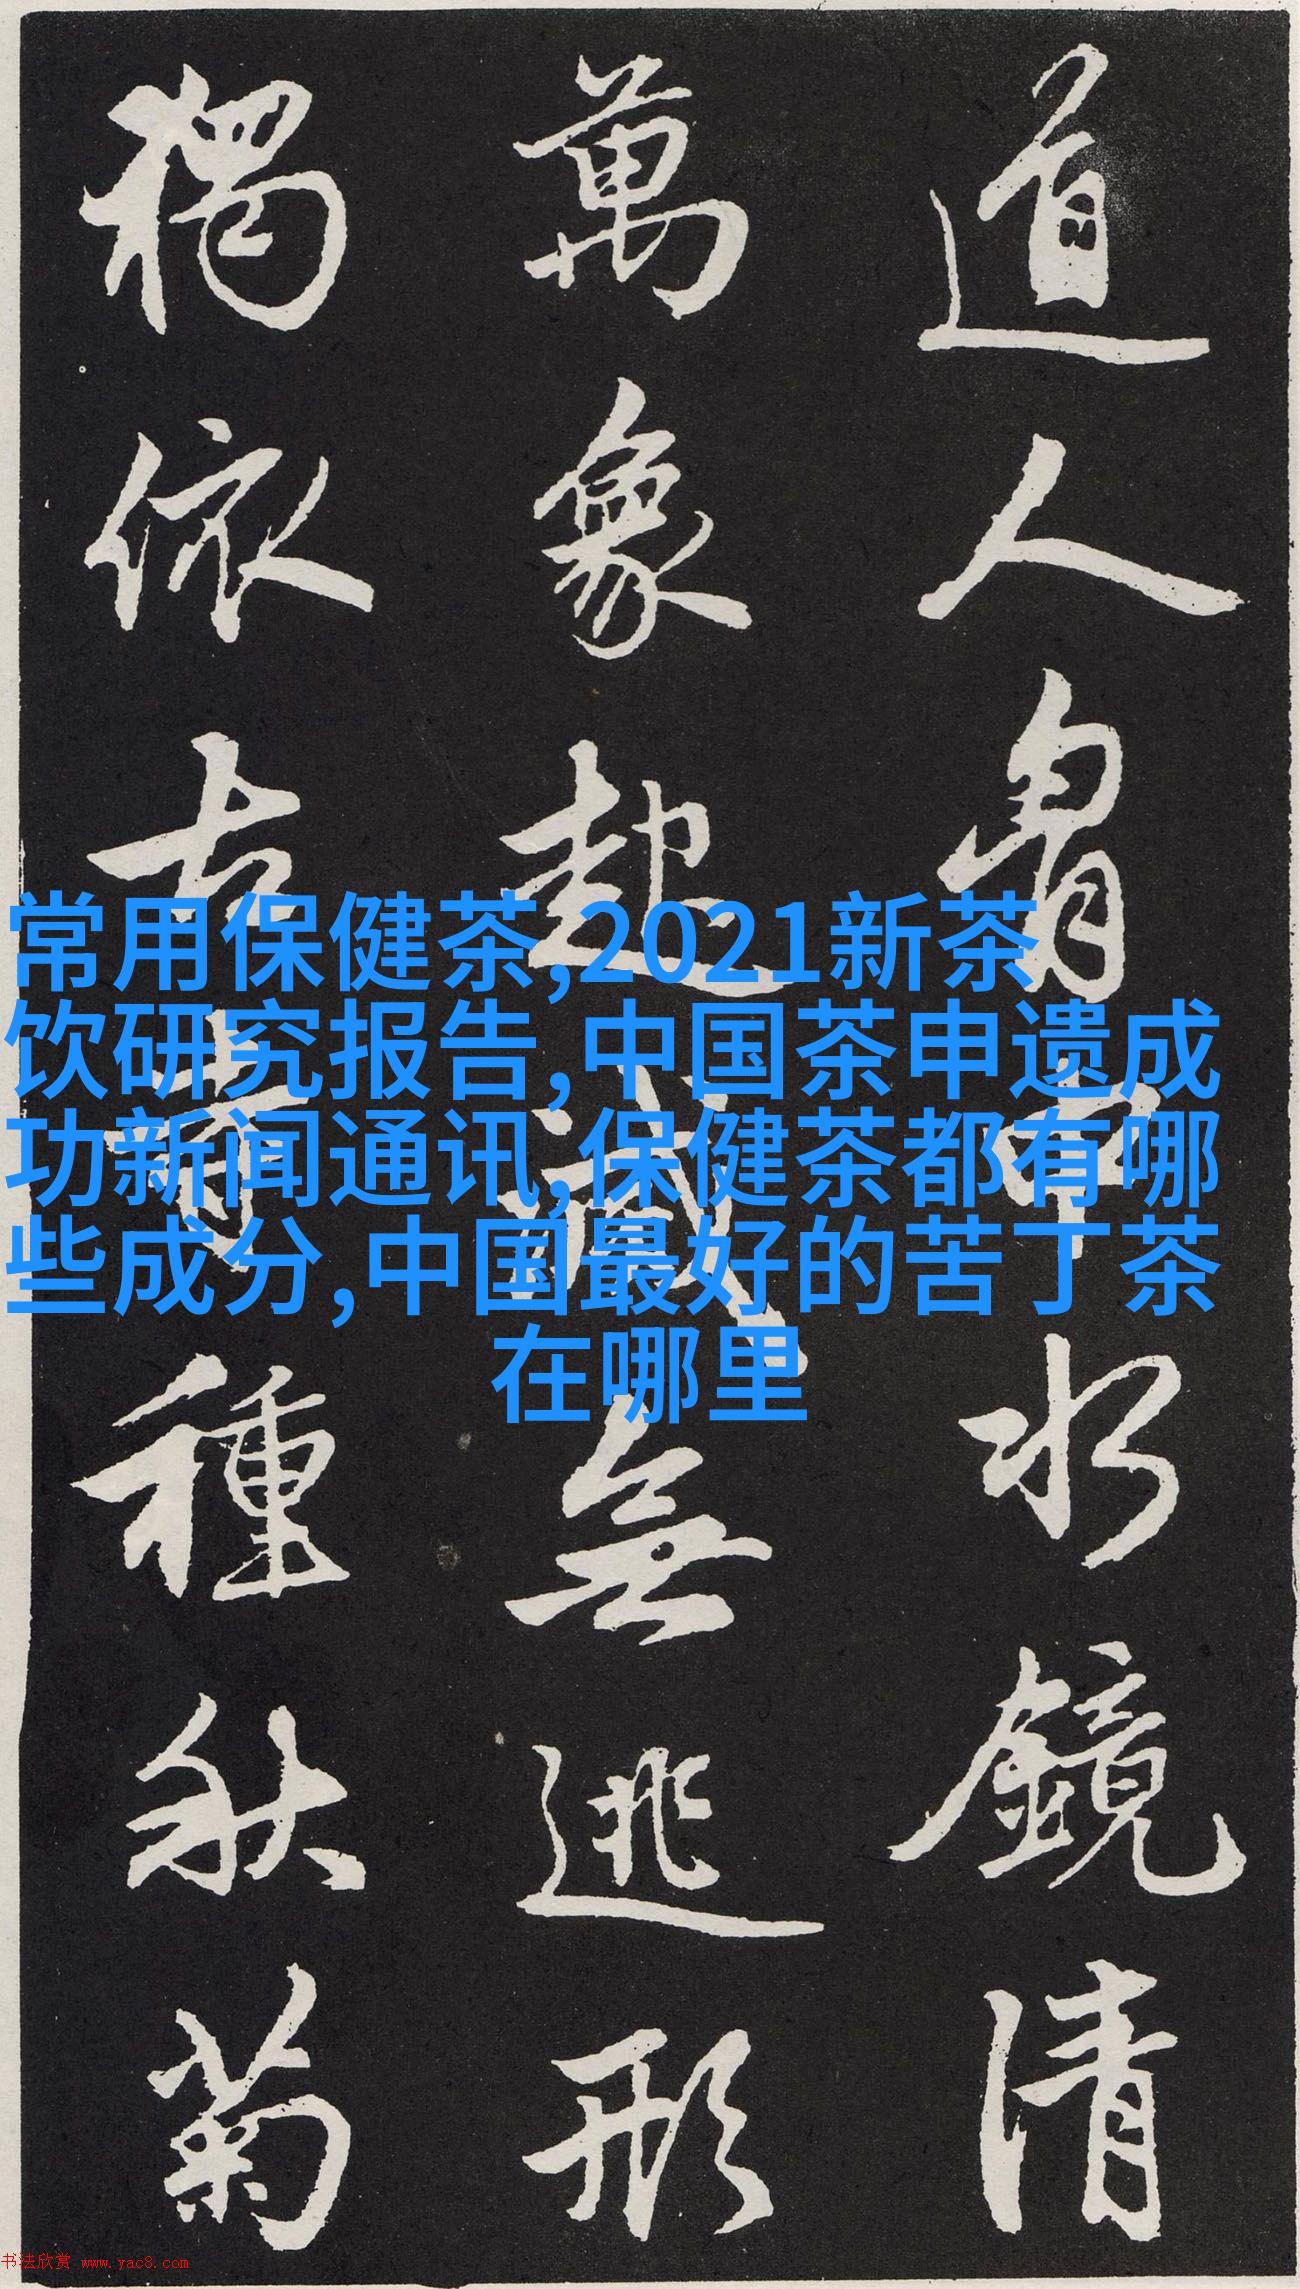 道人胷中水鏡清
萬象起滅無逃形
獨依古寺種秋菊
常用保健茶,2021新茶
饮研究报告,中国茶申遗成
功新闻通讯,保健茶都有哪
些成分,中国最好的苦丁茶
在哪里
书法欣赏 www.yac8.com